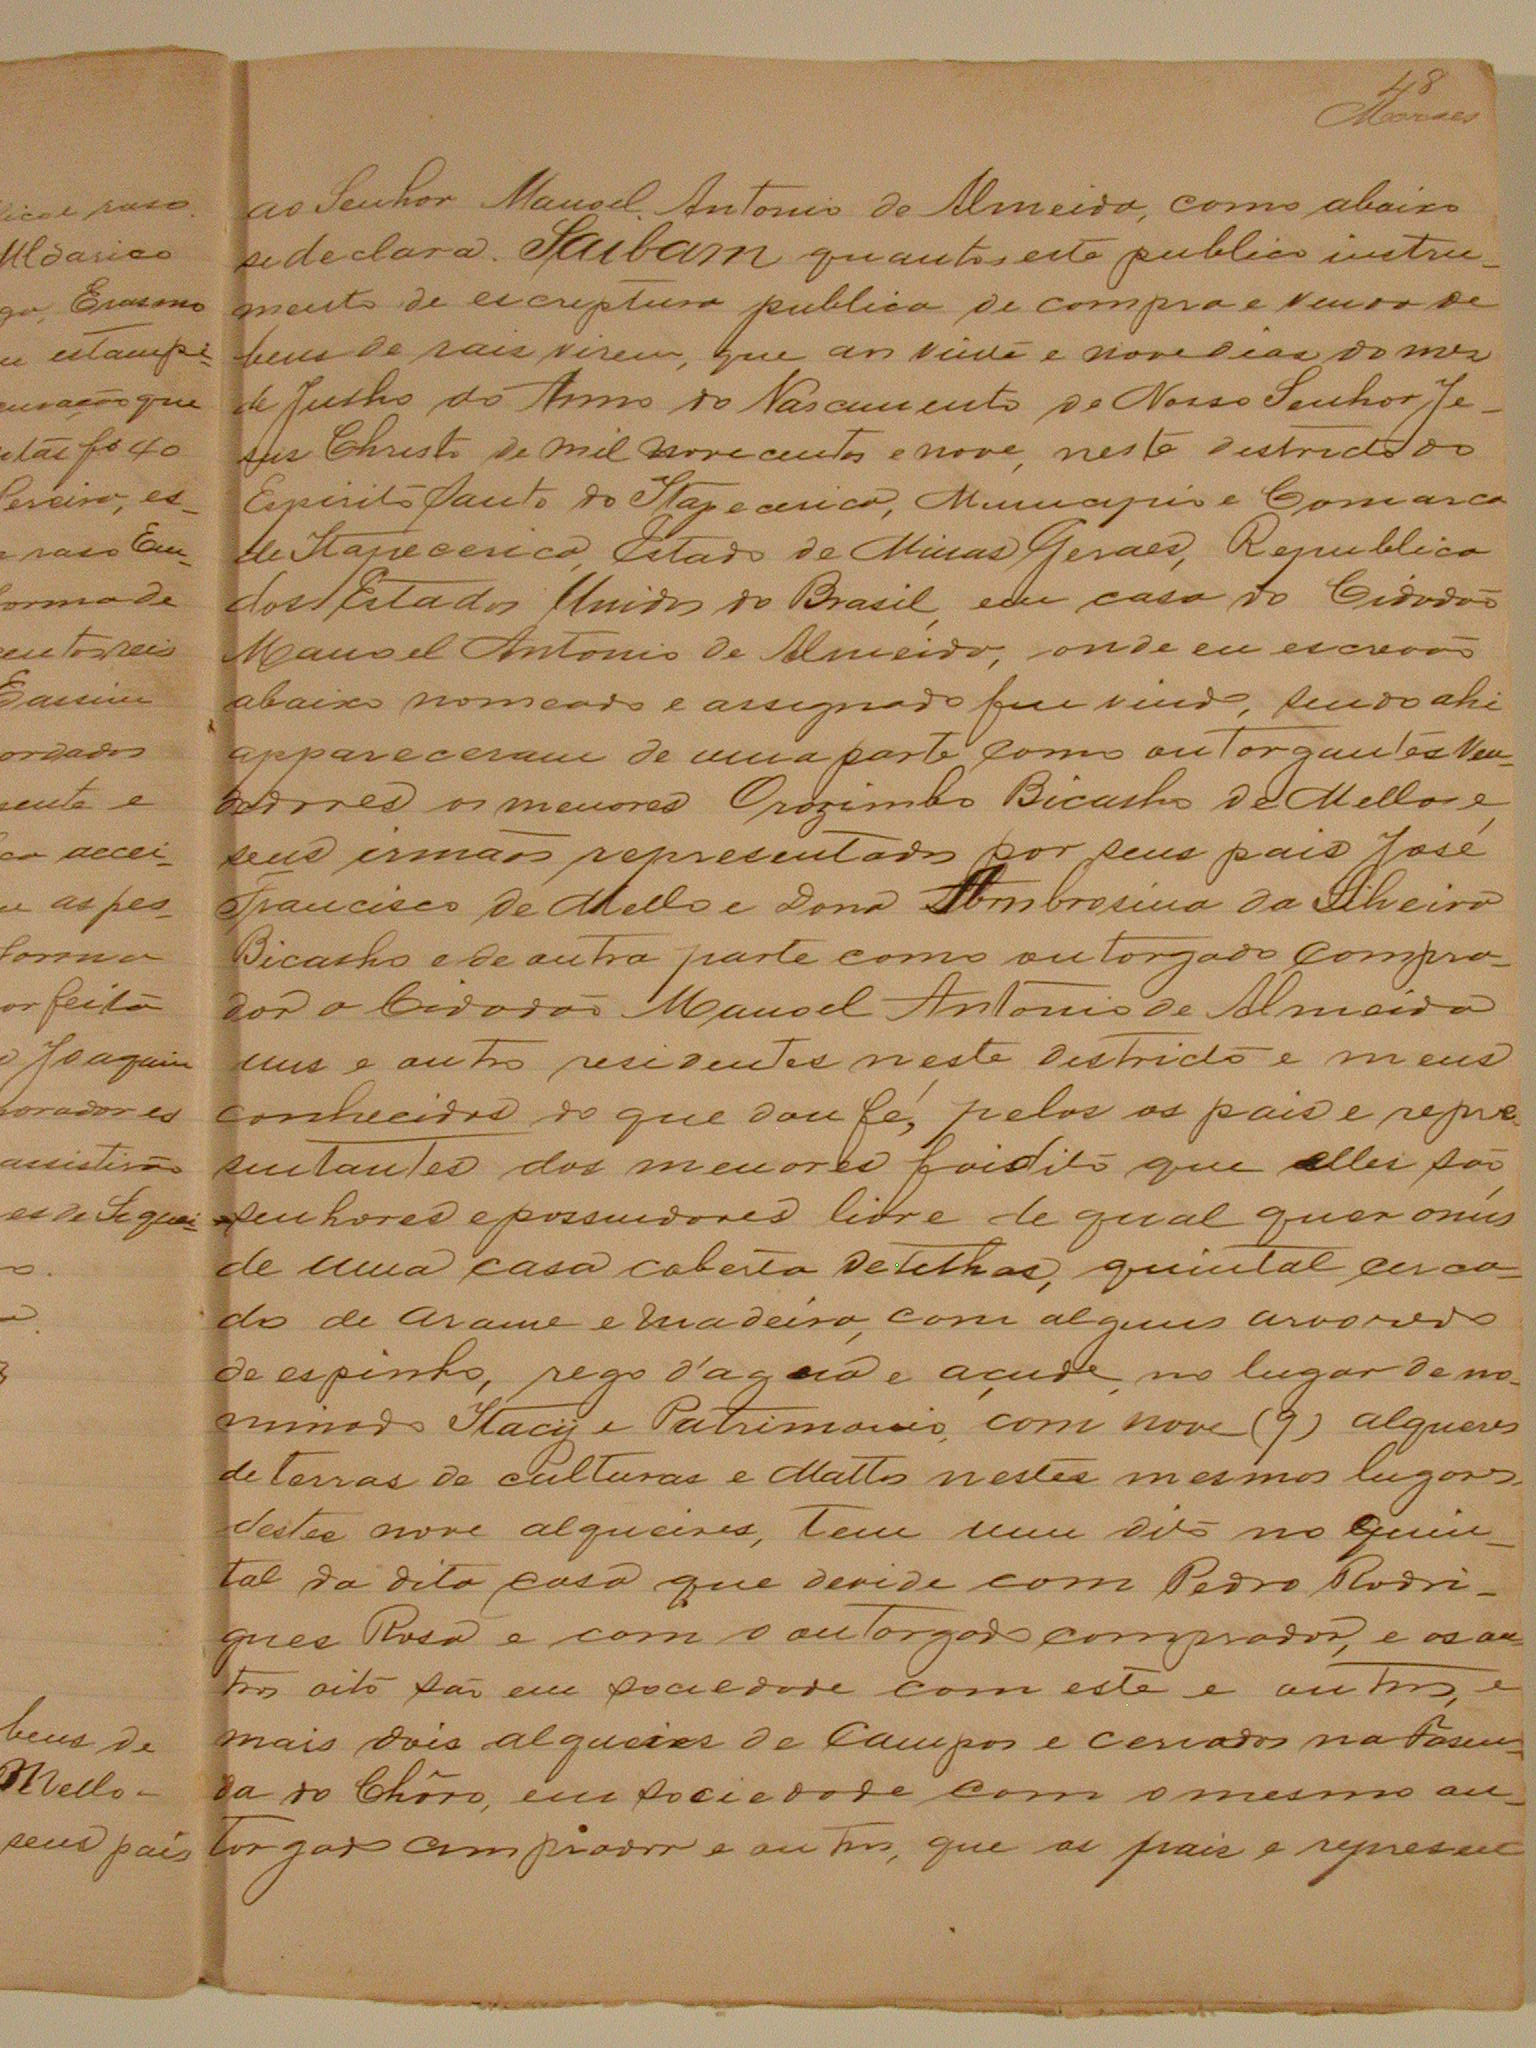 48
Moraes
ao Senhor Manoel Antonio de Almeida, como abaixo
se declara. Saibam quantos este publico instru-
mento de escriptura publica de compra e venda de
bens de rais virem, que aos vinte e nove dias do mez
de Junho do Anno do Nascimento de Nosso Senhor Je-
sus Christo de mil novecentos e nove, neste districto do
Espirito Santo do Itapecerica, Municipio e Comarca
de Itapecerica, Estado de Minas Geraes, Republica
dos Estados Unidos do Brasil, em casa do Cidadão
Manoel Antonio de Almeida, onde eu escrivão
abaixo nomeado e assignado fui vindo, sendo ahi
appareceram de uma parte como outorgantes ven-
dedores os menores Orozimbo Bicalho de Mello e
seus irmãos representados por seus pais José
Francisco de Mello e Dona Ambrosina da Silveira
Bicalho e de outra parte como outorgado compra-
dor o Cidadão Manoel Antonio de Almeida
uns e outro residentes neste districto e meus
conhecidos do que dou fé, pelos os pais e repre-
sentantes dos menores foi dito que elles são
senhores e possuidores livre de qual quer onus
de uma casa coberta de telhas, quintal cerca-
do de arame e madeira, com alguns arvoredo
de espinho, rego d'agua e açude, no lugar deno-
minado Itacy e Patrimonio, com nove (9) alqueres
de terras de culturas e Mattos nestes mesmos lugares,
destes nove alqueires, tem um dito no quin-
tal da dita casa que devide com Pedro Rodri-
gues Rosa e com o outorgado comprador, e os ou-
tros oito são em sociedade com este e outros, e
mais dois alqueires de Campos e cerrados na Fasen-
da do Chôro, em sociedade com o mesmo ou-
torgado comprador e outros, que os pais e represen
Erasmo
estampi-
que
fs 40
es-
raso
forma de
E assim
accei-
as pes-
forma
feita
Joaquim
moradores
assistirão
es de Siquei-
bens de
Mello-
seus pais